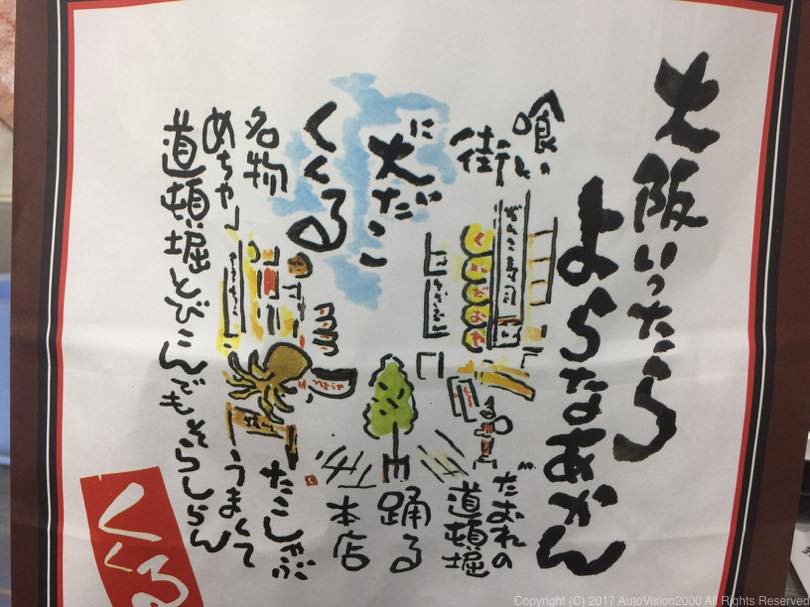 大阪いったら
よらなあかん
喰い
だおれの
街
道頓堀
に
踊る
大だこ
くくる
本店
名物
たこしゃぶ
めちゃ
うまくて
道頓堀とびこんでもそらしらん
ぜんこ寿司
くいだおれ
くくる
Copyright (C) 2017 AutoVision2000 All Rights Reserved